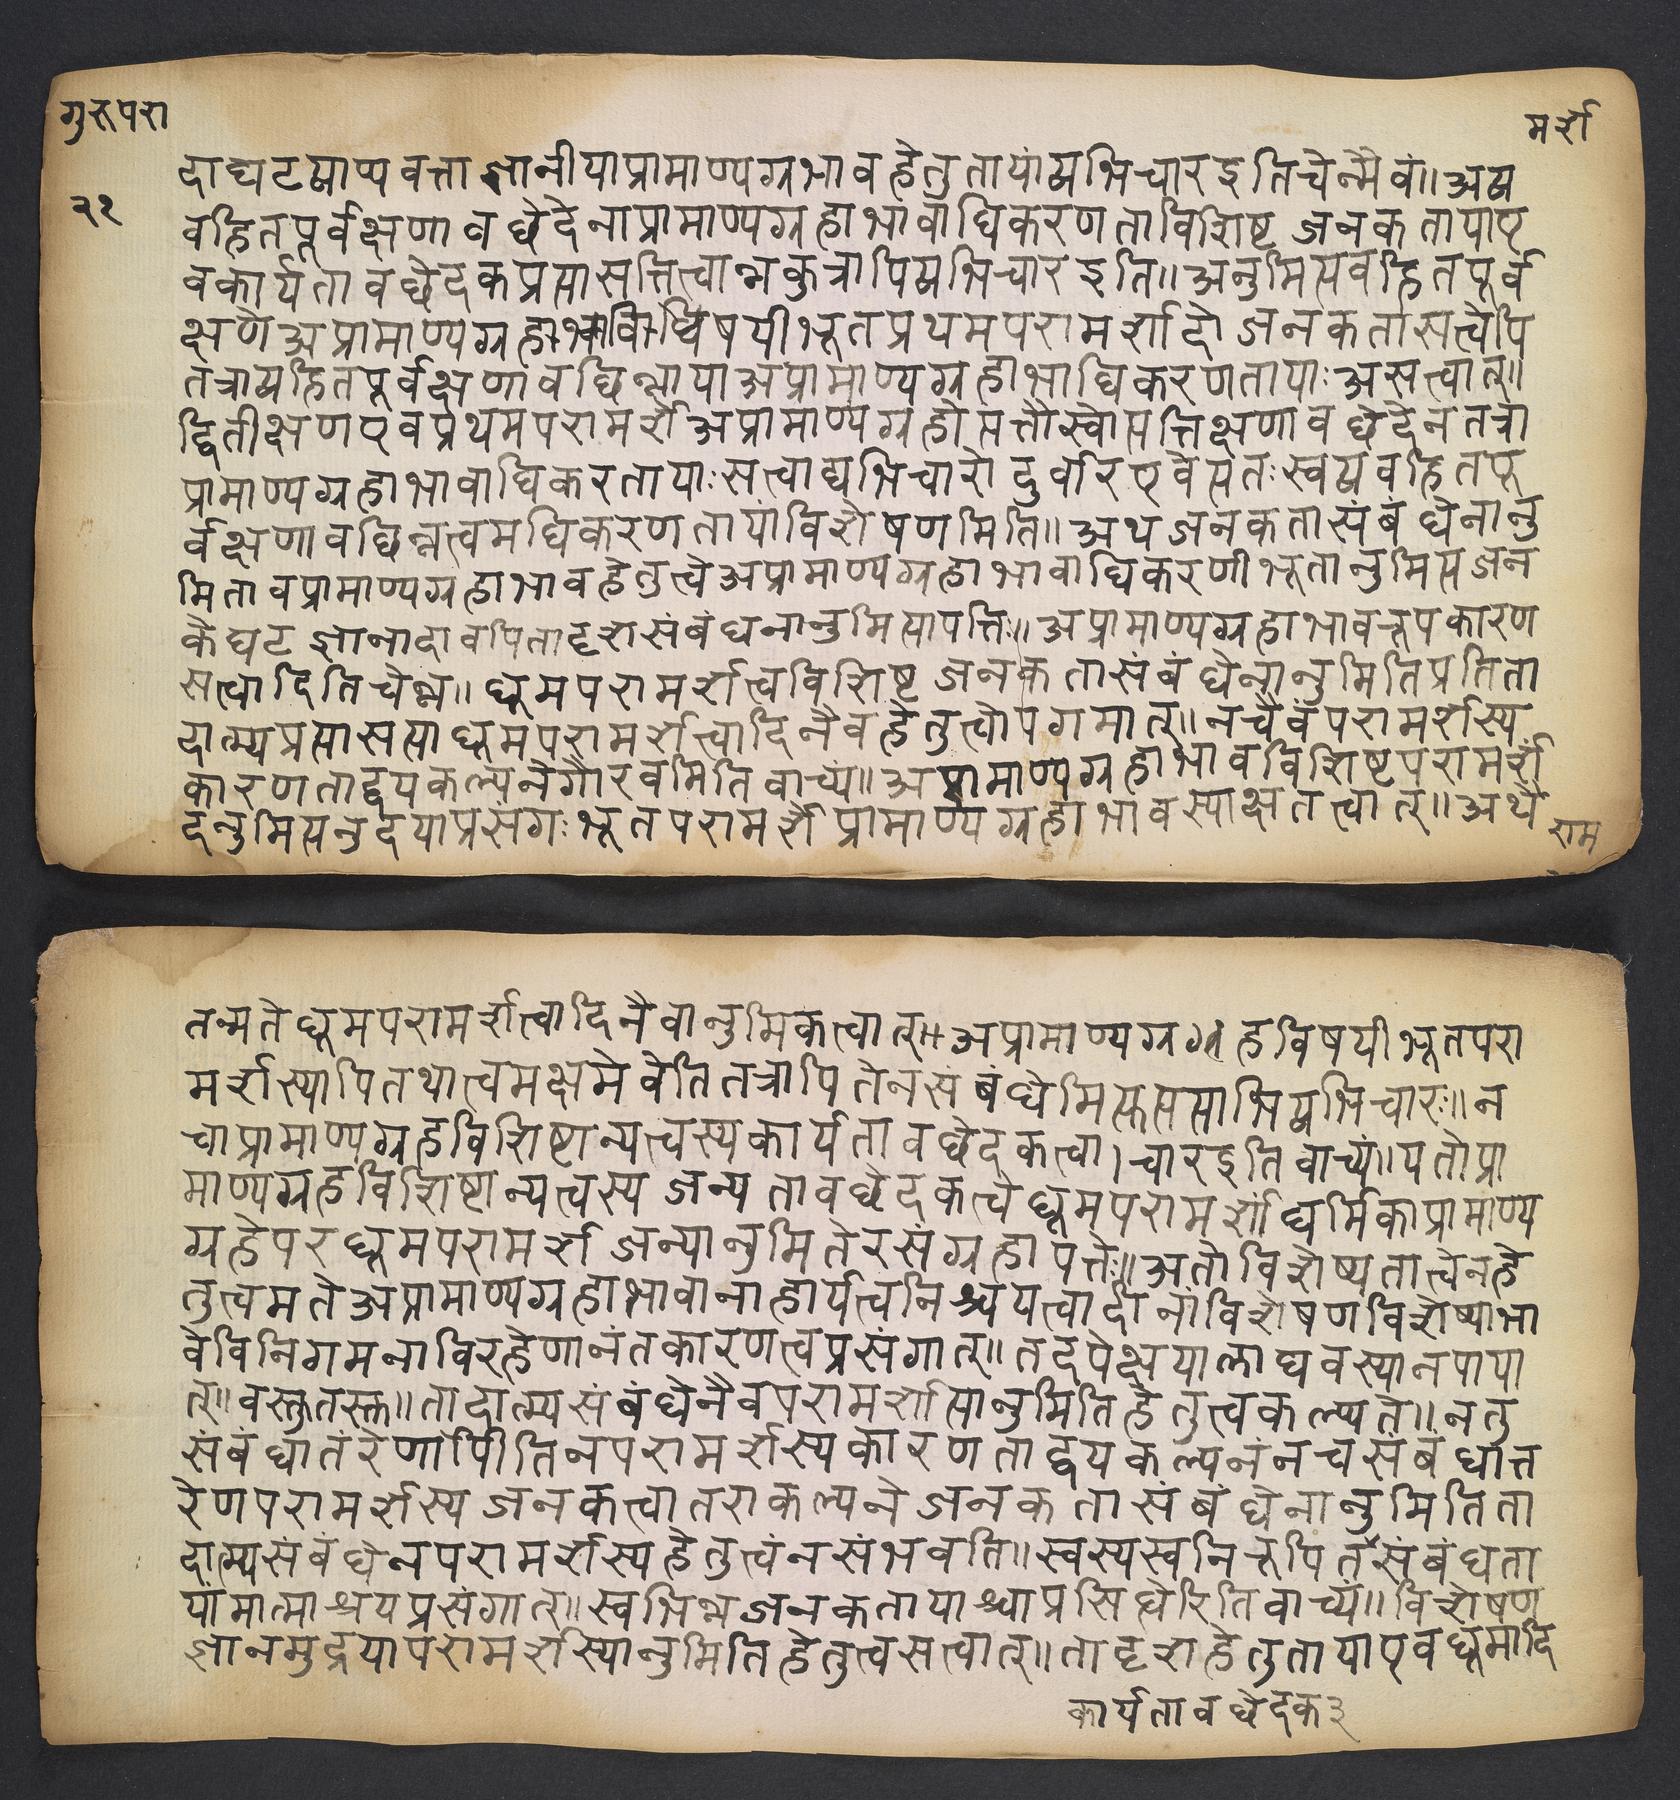 गुरुपरा
मर्श
२१
दाघटव्याप्यवत्ताज्ञानीयाप्रामाण्यग्रभावहेतुतायांव्यभिचारइतिचेन्मैवं॥अव्य
वहितपूर्वक्षणावछेदेनाप्रामाण्यग्रहाभावाधिकरणताविशिष्टजनकतायाए
वकार्यतावछेदकप्रत्यासत्तित्वान्नकुत्रापिव्यभिचारइति॥अनुमित्यवहितपूर्व
क्षणेअप्रामाण्यग्रहाभावविषयीभूतप्रथमपरामर्शादौजनकतासत्वेपि
तत्राव्यहितपूर्वक्षणावछिन्नायाअप्रामाण्यग्रहाभाधिकरणतायाःअसत्त्वात्॥
द्वितीक्षणएवप्रथमपरामर्शेअप्रामाण्यग्रहोत्पत्तौस्वोत्पत्तिक्षणावछेदेनतत्रा
प्रामाण्यग्रहाभावाधिकरतायाःसत्त्वाद्यभिचारोदुर्वारएवेत्यतःस्वव्यवहितपू
र्वक्षणावछिन्नत्त्वमधिकरणतायांविशेषणमिति॥अथजनकतासंबंधेनानु
मितावप्रामाण्यग्रहाभावहेतुत्त्वेअप्रामाण्यग्रहाभावाधिकरणीभूतानुमित्यजन
केघटज्ञानादावपितादृशसंबंधनानुमित्यापत्तिः॥अप्रामाण्यग्रहाभावरूपकारण
सत्वादितिचेन्न॥धूमपरामर्शत्त्वविशिष्टजनकतासंबंधेनानुमितिप्रतिता
दात्म्यप्रत्यासत्याधूमपरामर्शत्त्वादिनैवहेतुत्त्वोपगमात्॥नचैवंपरामर्शस्य
कारणताद्वयकल्पनेगौरवमितिवाच्यं॥अप्रामाण्यग्रहाभावविशिष्टपरामर्शं
दनुमित्यनुदयाप्रसंगःभूतपरामर्शेप्रामाण्यग्रहाभावस्याक्षतत्त्वात्॥अथै
राम
तन्मतेधूमपरामर्शत्त्वादिनैवानुमिकत्त्वात्॥अप्रामाण्यग्रहविषयीभूतपरा
मर्शस्यापितथात्त्वमक्षमेवेतितत्रापितेनसंबंधेमित्युत्पत्याभिव्यभिचारः॥न
चाप्रामाण्यग्रहविशिष्टान्यत्त्वस्यकार्यतावछेदकत्त्वा।चारइतिवाच्यं॥यतोप्रा
माण्यग्रहविशिष्टान्यत्त्वस्यजन्यतावछेदकत्त्वेधूमपरामर्शाधर्मिकाप्रामाण्य
ग्रहेपरधूमपरामर्शजन्यानुमितेरसंग्रहापत्तेः॥अतोविशेष्यतात्त्वेनहे
तुत्त्वमतेअप्रामाण्यग्रहाभावानाहार्यत्त्वनिश्चयत्त्वादीनांविशेषणविशेष्याभा
वेविनिगमनाविरहेणानंतकारणत्त्वप्रसंगात्॥तदपेक्षयालाघवस्यानपाया
त्॥वस्तुतस्त॥तादात्म्यसंबंधेनैवपरामर्शास्यानुमितिहेतुत्त्वकल्प्यते॥नतु
संबंधांतरेणापीतिनपरामर्शस्यकारणताद्वयकल्पनंनचसंबंधांत्त
रेणपरामर्शस्यजनकत्त्वातराकल्पनेजनकतासंबंधेनानुमितिता
दात्म्यसंबंधेनपरामर्शस्यहेतुत्त्वंनसंभवति॥स्वस्यस्वनिरूपितसंबंधता
यामात्माश्रयप्रसंगात्॥स्वभिन्नजनकतायाश्चाप्रसिधेरितिवाच्यं॥विशेषण
ज्ञानमुद्रयापरामर्शस्यानुमितिहेतुत्त्वसत्त्वात्॥तादृशहेतुतायाएवधूमादि
कार्यतावछेदक३